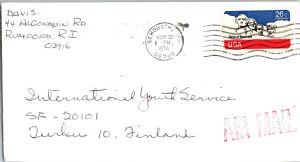 DAVIS
44 ALGONQUIN RD.
RUMFORD, R.I
02916
NOV
PM
1974
26c
USA
International Youth Service
SF - 20101
Turku 10, Finland
AIR MAIL